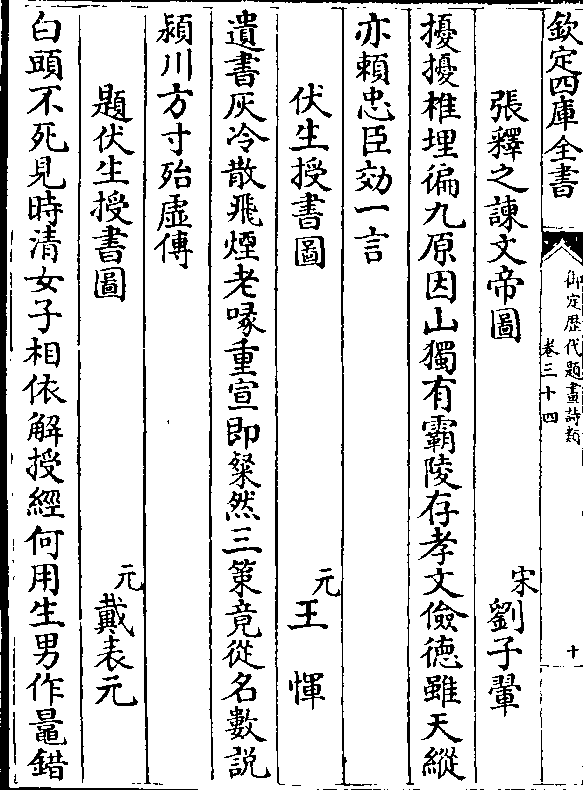 欽定四庫全書
御定歴代題畫詩類
卷三十四
十
張釋之諫文帝圖
宋劉子翬
擾擾椎埋徧九原因山獨有霸陵存孝文儉德雖天縱
亦賴忠臣効一言
伏生授書圖
元王惲
遺書灰冷散飛煙老喙重宣即粲然三策竟從名數說
潁川方寸殆虛傳
題伏生授書圖
元戴表元
白頭不死見時清女子相依解授經何用生男作鼂錯